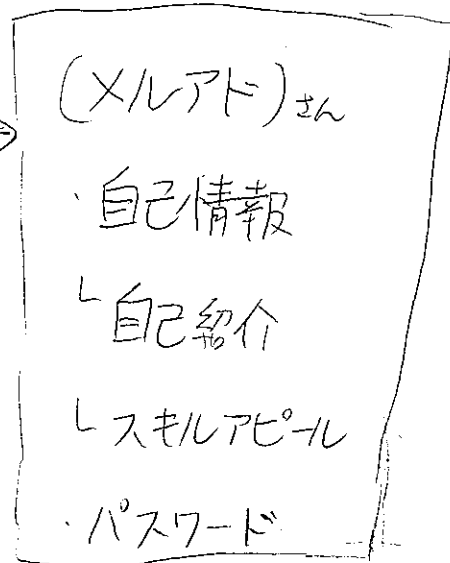 (メルアド)さん
・自己情報
└自己紹介
└スキルアピール
・パスワード